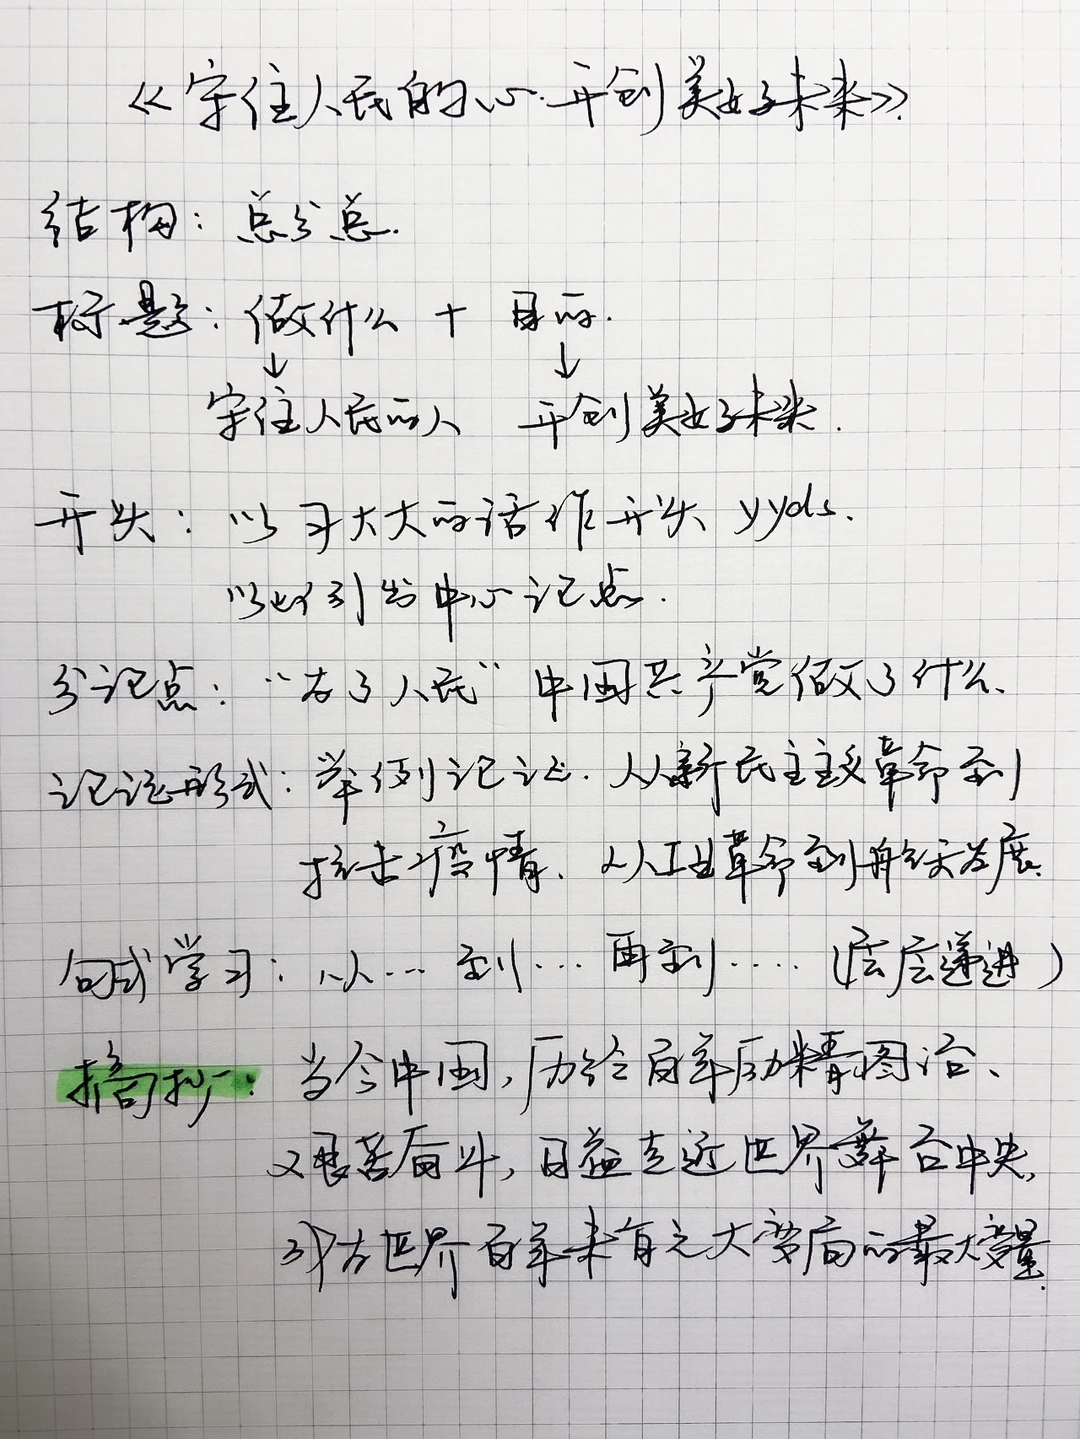 《守住人民的心·开创美好未来》
结构：总分总.
标题：做什么 + 目的.
↓ ↓
守住人民的人 开创美好未来.
开头：以习大大的话作开头 yyds.
以此引出中心论点.
分论点：“为了人民” 中国共产党做了什么、
论证形式：举例论证. 从新民主主义革命到
抗击疫情、从工业革命到航天发展.
句式学习：从… 到… 再到…. (层层递进)
摘抄：当今中国,历经百年励精图治、
艰苦奋斗,日益走近世界舞台中央,
成为世界百年未有之大变局的最大变量.